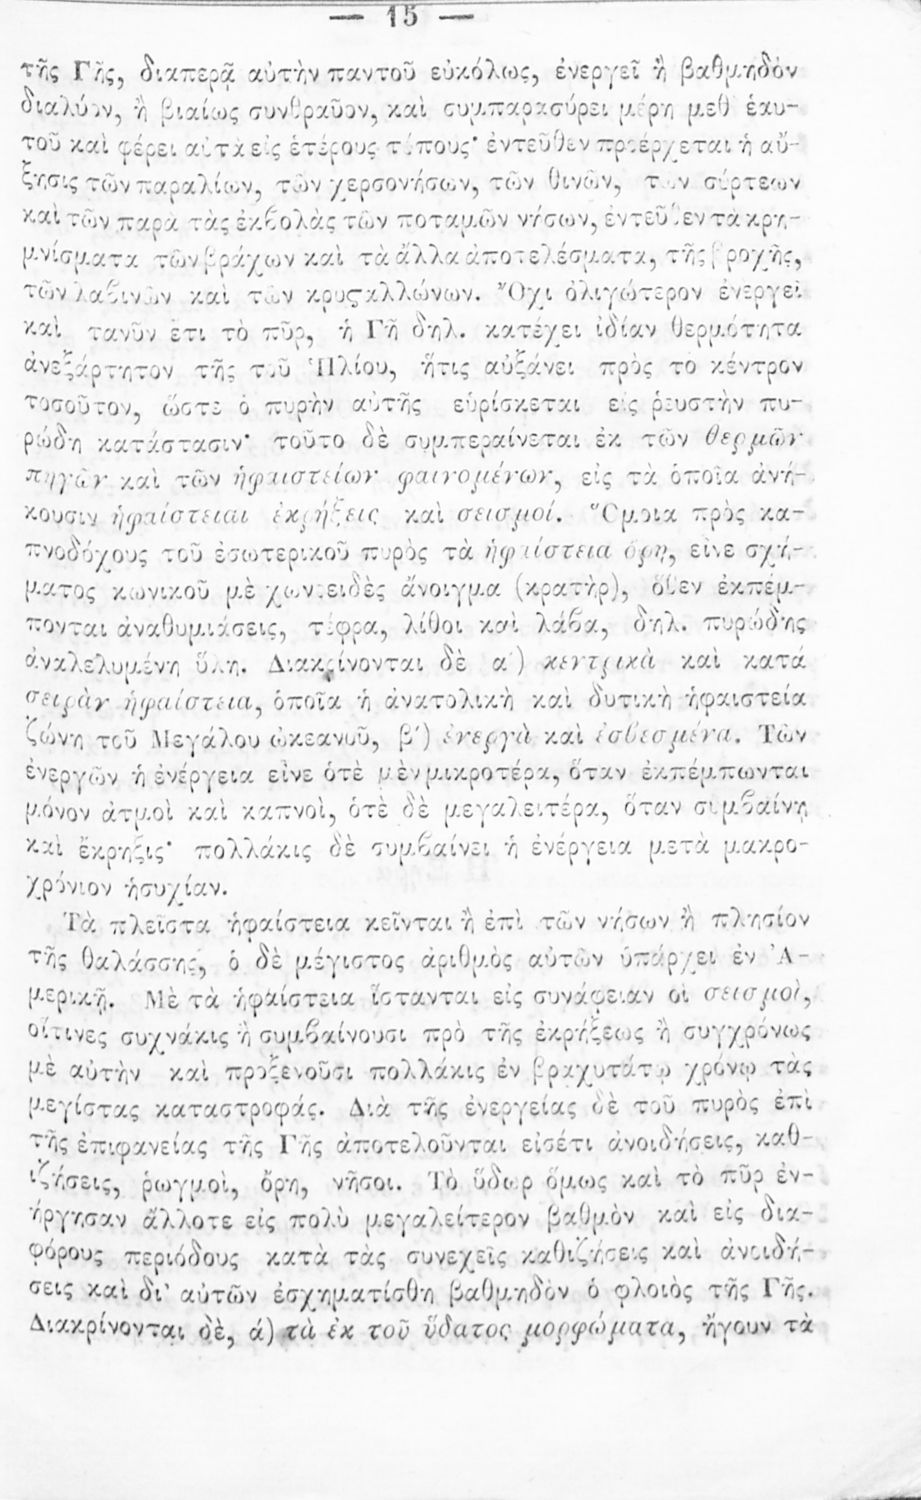 — 15 —
τῆς Γῆς, διαπερᾷ αὐτὴν παντοῦ εὐκόλως, ἐνεργεῖ ἢ βαθμηδὸν
διαλύον, ἢ βιαίως συνθραῦον, καὶ συμπαρασύρει μέρη μεθ' ἑαυ-
τοῦ καὶ φέρει αὐτὰ εἰς ἑτέρους τόπους· ἐντεῦθεν προέρχεται ἡ αὔ-
ξησις τῶν παραλίων, τῶν χερσονήσων, τῶν θινῶν, τῶν σύρτεων
καὶ τῶν παρὰ τὰς ἐκβολὰς τῶν ποταμῶν νήσων, ἐντεῦθεν τὰ κρη-
μνίσματα τῶν βράχων καὶ τὰ ἄλλα ἀποτελέσματα, τῆς βροχῆς,
τῶν λαβινῶν καὶ τῶν κρυϛαλλώνων. Ὄχι ὀλιγώτερον ἐνεργεῖ
καὶ τανῦν ἔτι τὸ πῦρ, ἡ Γῆ δηλ. κατέχει ἰδίαν θερμότητα
ἀνεξάρτητον τῆς τοῦ Ἡλίου, ἥτις αὐξάνει πρὸς τὸ κέντρον
τοσοῦτον, ὥστε ὁ πυρὴν αὐτῆς εὑρίσκεται εἰς ῥευστὴν πυ-
ρώδη κατάστασιν· τοῦτο δὲ συμπεραίνεται ἐκ τῶν θερμῶν
πηγῶν καὶ τῶν ἡφαιστείων φαινομένων, εἰς τὰ ὁποῖα ἀνή-
κουσιν ἡφαίστειαι ἐκρήξεις καὶ σεισμοί. Ὅμοια πρὸς κα-
πνοδόχους τοῦ ἐσωτερικοῦ πυρὸς τὰ ἡφαίστεια ὄρη, εἶνε σχή-
ματος κωνικοῦ μὲ χωνοειδὲς ἄνοιγμα (κρατὴρ), ὅθεν ἐκπέμ-
πονται ἀναθυμιάσεις, τέφρα, λίθοι καὶ λάβα, δηλ. πυρώδης
ἀναλελυμένη ὕλη. Διακρίνονται δὲ α΄) κεντρικὰ καὶ κατά
σειρὰν ἡφαίστεια, ὁποῖα ἡ ἀνατολικὴ καὶ δυτικὴ ἡφαιστεία
ζώνη τοῦ Μεγάλου ὠκεανοῦ, β΄) ἐνεργὰ καὶ ἐσβεσμένα. Τῶν
ἐνεργῶν ἡ ἐνέργεια εἶνε ὁτὲ μὲν μικροτέρα, ὅταν ἐκπέμπωνται
μόνον ἀτμοὶ καὶ καπνοὶ, ὁτὲ δὲ μεγαλειτέρα, ὅταν συμβαίνῃ
καὶ ἔκρηξις· πολλάκις δὲ συμβαίνει ἡ ἐνέργεια μετὰ μακρο-
χρόνιον ἡσυχίαν.
Τὰ πλεῖστα ἡφαίστεια κεῖνται ἢ ἐπὶ τῶν νήσων ἢ πλησίον
τῆς θαλάσσης, ὁ δὲ μέγιστος ἀριθμὸς αὐτῶν ὑπάρχει ἐν Ἀ-
μερικῇ. Μὲ τὰ ἡφαίστεια ἵστανται εἰς συνάφειαν οἱ σεισμοὶ,
οἵτινες συχνάκις ἢ συμβαίνουσι πρὸ τῆς ἐκρήξεως ἢ συγχρόνως
μὲ αὐτὴν καὶ προξενοῦσι πολλάκις ἐν βραχυτάτῳ χρόνῳ τὰς
μεγίστας καταστροφάς. Διὰ τῆς ἐνεργείας δὲ τοῦ πυρὸς ἐπὶ
τῆς ἐπιφανείας τῆς Γῆς ἀποτελοῦνται εἰσέτι ἀνοιδήσεις, καθ-
ιζήσεις, ῥωγμοὶ, ὄρη, νῆσοι. Τὸ ὕδωρ ὅμως καὶ τὸ πῦρ ἐν-
ήργησαν ἄλλοτε εἰς πολὺ μεγαλείτερον βαθμὸν καὶ εἰς δια-
φόρους περιόδους κατὰ τὰς συνεχεῖς καθιζήσεις καὶ ἀνοιδή-
σεις καὶ δι' αὐτῶν ἐσχηματίσθη βαθμηδὸν ὁ φλοιὸς τῆς Γῆς.
Διακρίνονται δὲ, ά) τὰ ἐκ τοῦ ὕδατος μορφώματα, ἤγουν τὰ